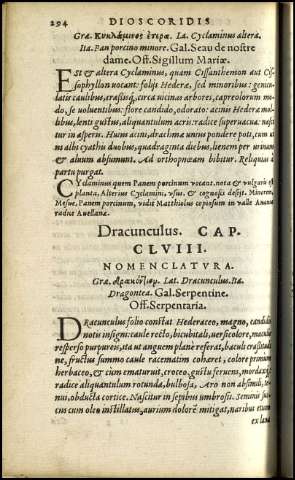 294 DIOSCORIDIS
Græ. Κυκλάμινος ἑτέρα. La. Cyclaminus altera.
Ita. Pan porcino minore. Gal. Seau de nostre
dame. Off. Sigillum Mariæ.
EST & altera Cyclaminus, quam Cissanthemon aut Cis-
sophyllon vocant: folijs Hederæ, sed minoribus: genicu-
latis caulibus, crassis q́, circa vicinas arbores, capreolorum mo-
do, se voluentibus: flore candido, odorato: acino Hederæ molli
bus, lentis gustu, aliquantulum acri: radice superuacua: nasci
tur in asperis. Huius acini, drachmæ vnius pondere poti, cum vi
ni albi cyathis duobus, quadraginta diebus, lienem per vrinam
& aluum absumunt. Ad orthopnœam bibitur. Reliqui à
partu purgat.
Cyclaminus quem Panem porcinum vocant, nota & vulgaris est
planta. Alterius Cyclamini, vsus, & cognitio desijt. Minorem,
Mesue, Panem porcinum, vidit Matthiolus copiosum in valle Anan
radice Auellanæ.
Dracunculus. CAP.
CLVIII.
NOMENCLATVRA.
Græ. Lat. Dracunculus. Ita.
Dragontea. Gal. Serpentine.
Off. Serpentaria.
DRacunculus folio constat Hederaceo, magno, candidis
notis insigni: caule recto, bicubitali, versicolore, maculis
resperso purpureis, ita vt anguem planè referat, baculi crassitudi
ne, fructus summo caule racematim cohæret, colore primùm
herbaceo, & cùm ematuruit, croceo, gustu feruens, mordax:
radice aliquantulum rotunda, bulbosa, Aro non absimili, te-
nui, obducta cortice. Nascitur in sepibus vmbrosis. Seminis suc-
cus cum oleo instillatus, aurium dolorē mitigat, naribus
ex lana